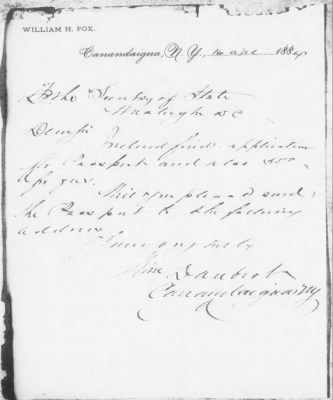 WILLIAM H. FOX.
Canandaigua, N. Y., 188
To the Secretary of State
Washington DC
Dear Sir
Inclosed find application
for Passport and also
for
Will you please send
the Passport to the following
address
Yours truly
Canandaigua NY